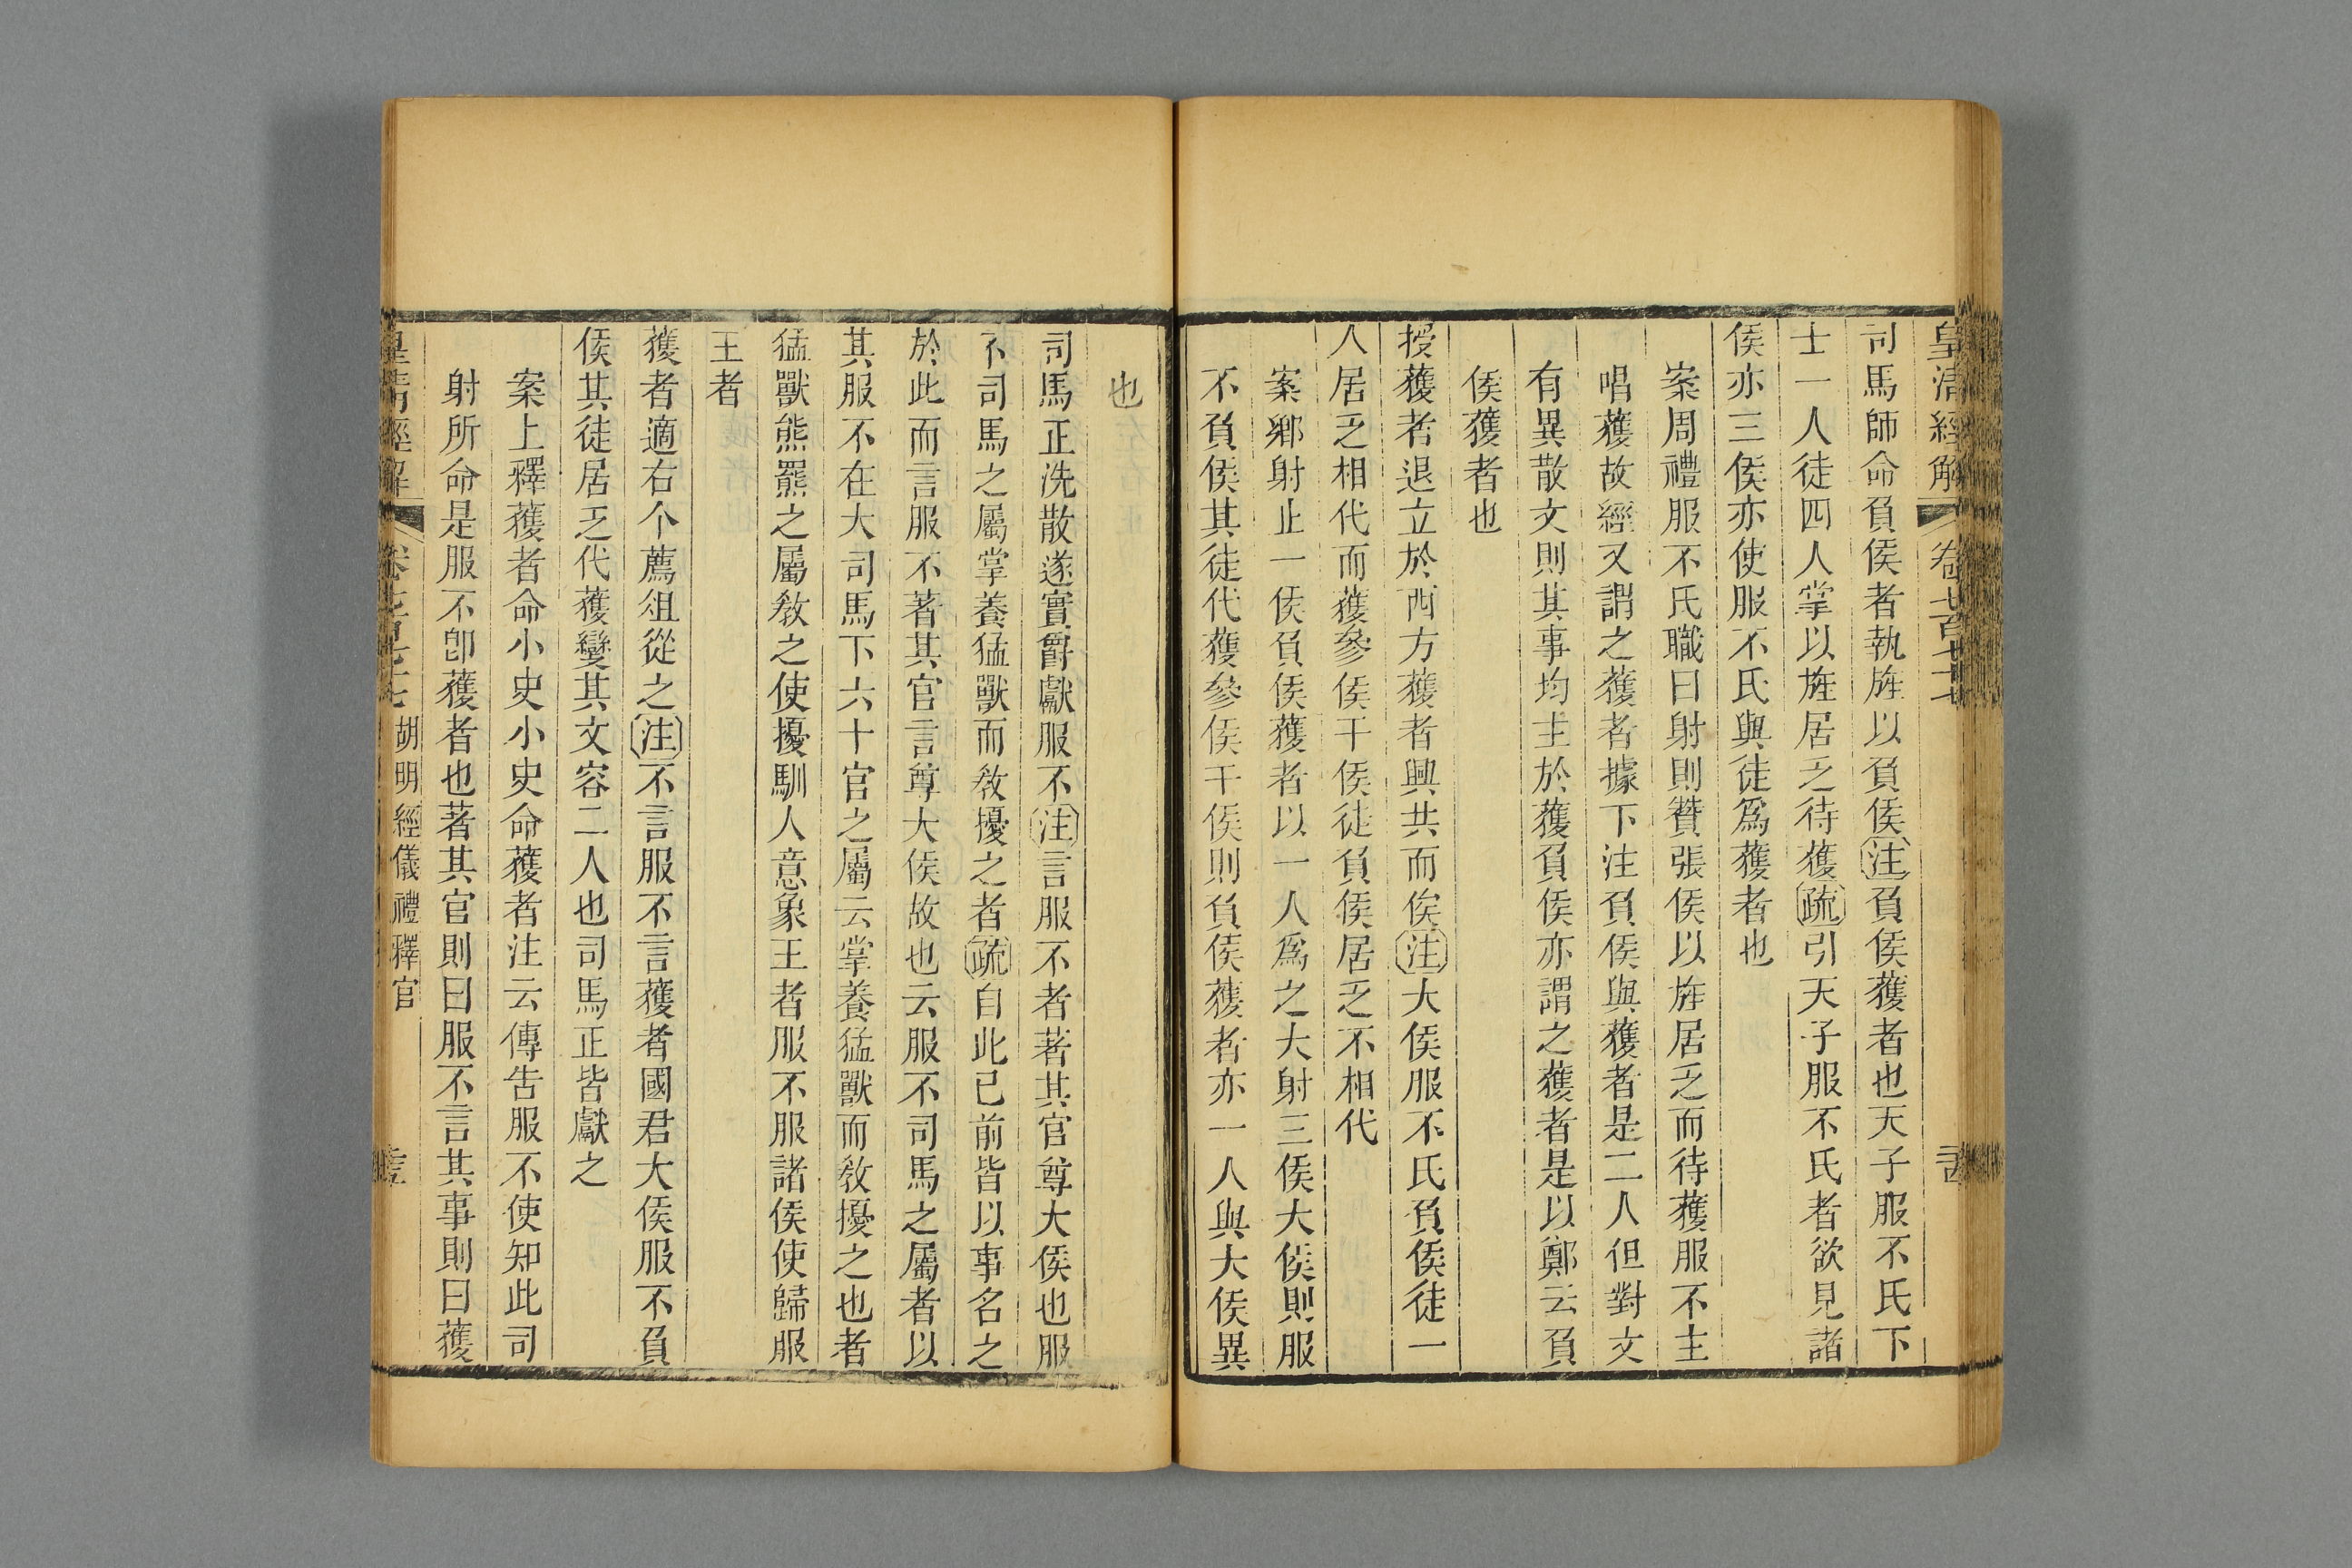 皇清經解 卷七百七十七 三四
司馬師命負侯者執旌以負侯注負侯獲者也天子服不氏下
士一人徒四人掌以旌居乏待獲疏引天子服不氏者欲見諸
侯亦三侯亦使服不氏與徒爲獲者也
案周禮服不氏職曰射則贊張侯以旌居乏而待獲服不主
唱獲故經又謂之獲者據下注負侯與獲者是二人但對文
有異散文則其事均主於獲負侯亦謂之獲者是以鄭云負
侯獲者也
授獲者退立於西方獲者興共而俟注大侯服不氏負侯徒一
人居乏相代而獲參侯干侯徒負侯居乏不相代
案鄉射止一侯負侯獲者以一人爲之大射三侯大侯則服
不負侯其徒代獲參侯干侯則負侯獲者亦一人與大侯異
也
司馬正洗散遂實爵獻服不注言服不者著其官尊大侯也服
不司馬之屬掌養猛獸而敎擾之者疏自此已前皆以事名之
於此而言服不著其官言尊大侯故也云服不司馬之屬者以
其服不在大司馬下六十官之屬云掌養猛獸而敎擾之也者
猛獸熊羆之屬敎之使擾馴人意象王者服不服諸侯使歸服
王者
獲者適右个薦俎從之注不言服不言獲者國君大侯服不負
侯其徒居乏代獲變其文容二人也司馬正皆獻之
案上釋獲者命小史小史命獲者注云傳告服不使知此司
射所命是服不卽獲者也著其官則曰服不言其事則曰獲
皇清經解 卷七百七十七 胡明經儀禮釋官